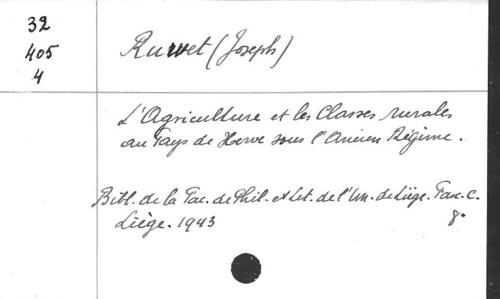 32
405
4
Ruwet (Joseph)
L'Agriculture et les Classes rurales
au Pays de Herve sous l'Ancien Régime.
Bibl. de la Fac. de Phil. et Let. de l'Un. de Liège. Fasc. C.
Liège. 1943
8°